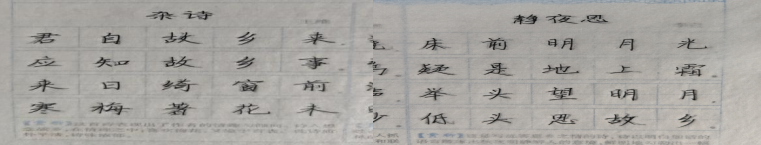 杂诗
君自故乡来
应知故乡事
来日绮窗前
寒梅著花未
静夜思
床前明月光
疑是地上霜
举头望明月
低头思故乡